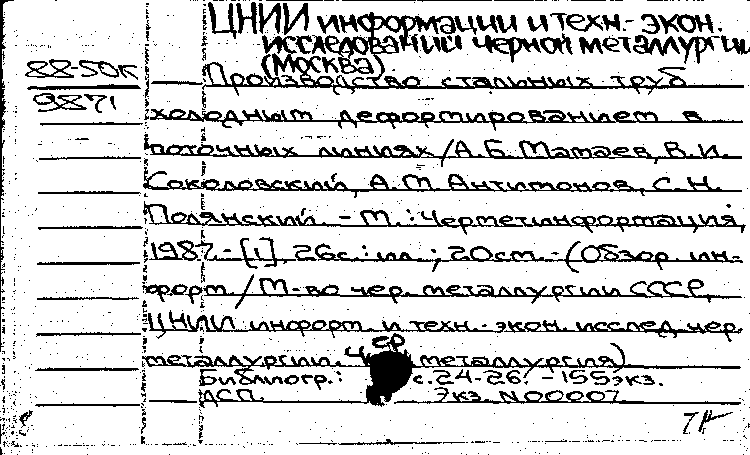 ЦНИИ информации и техн.- экон.
исследований черной металлургии
(Москва).
88-50к
Производство стальных труб
9871
холодным деформированием в
поточных линиях / А.Б. Матаев, В.И.
Соколовский, А.М. Антимонов, С.Н.
Полянский. - М.: Черметинформация,
1987. - [1], 26с.: ил.; 20см. - (Обзор. ин-
форм. / М-во чер. металлургии СССР,
ЦНИИ информ. и техн.- экон. исслед. чер.
металлургии. ср металлургия)
Библиогр.: с.24-26. - 155экз.
ДСП. Экз. N00007.